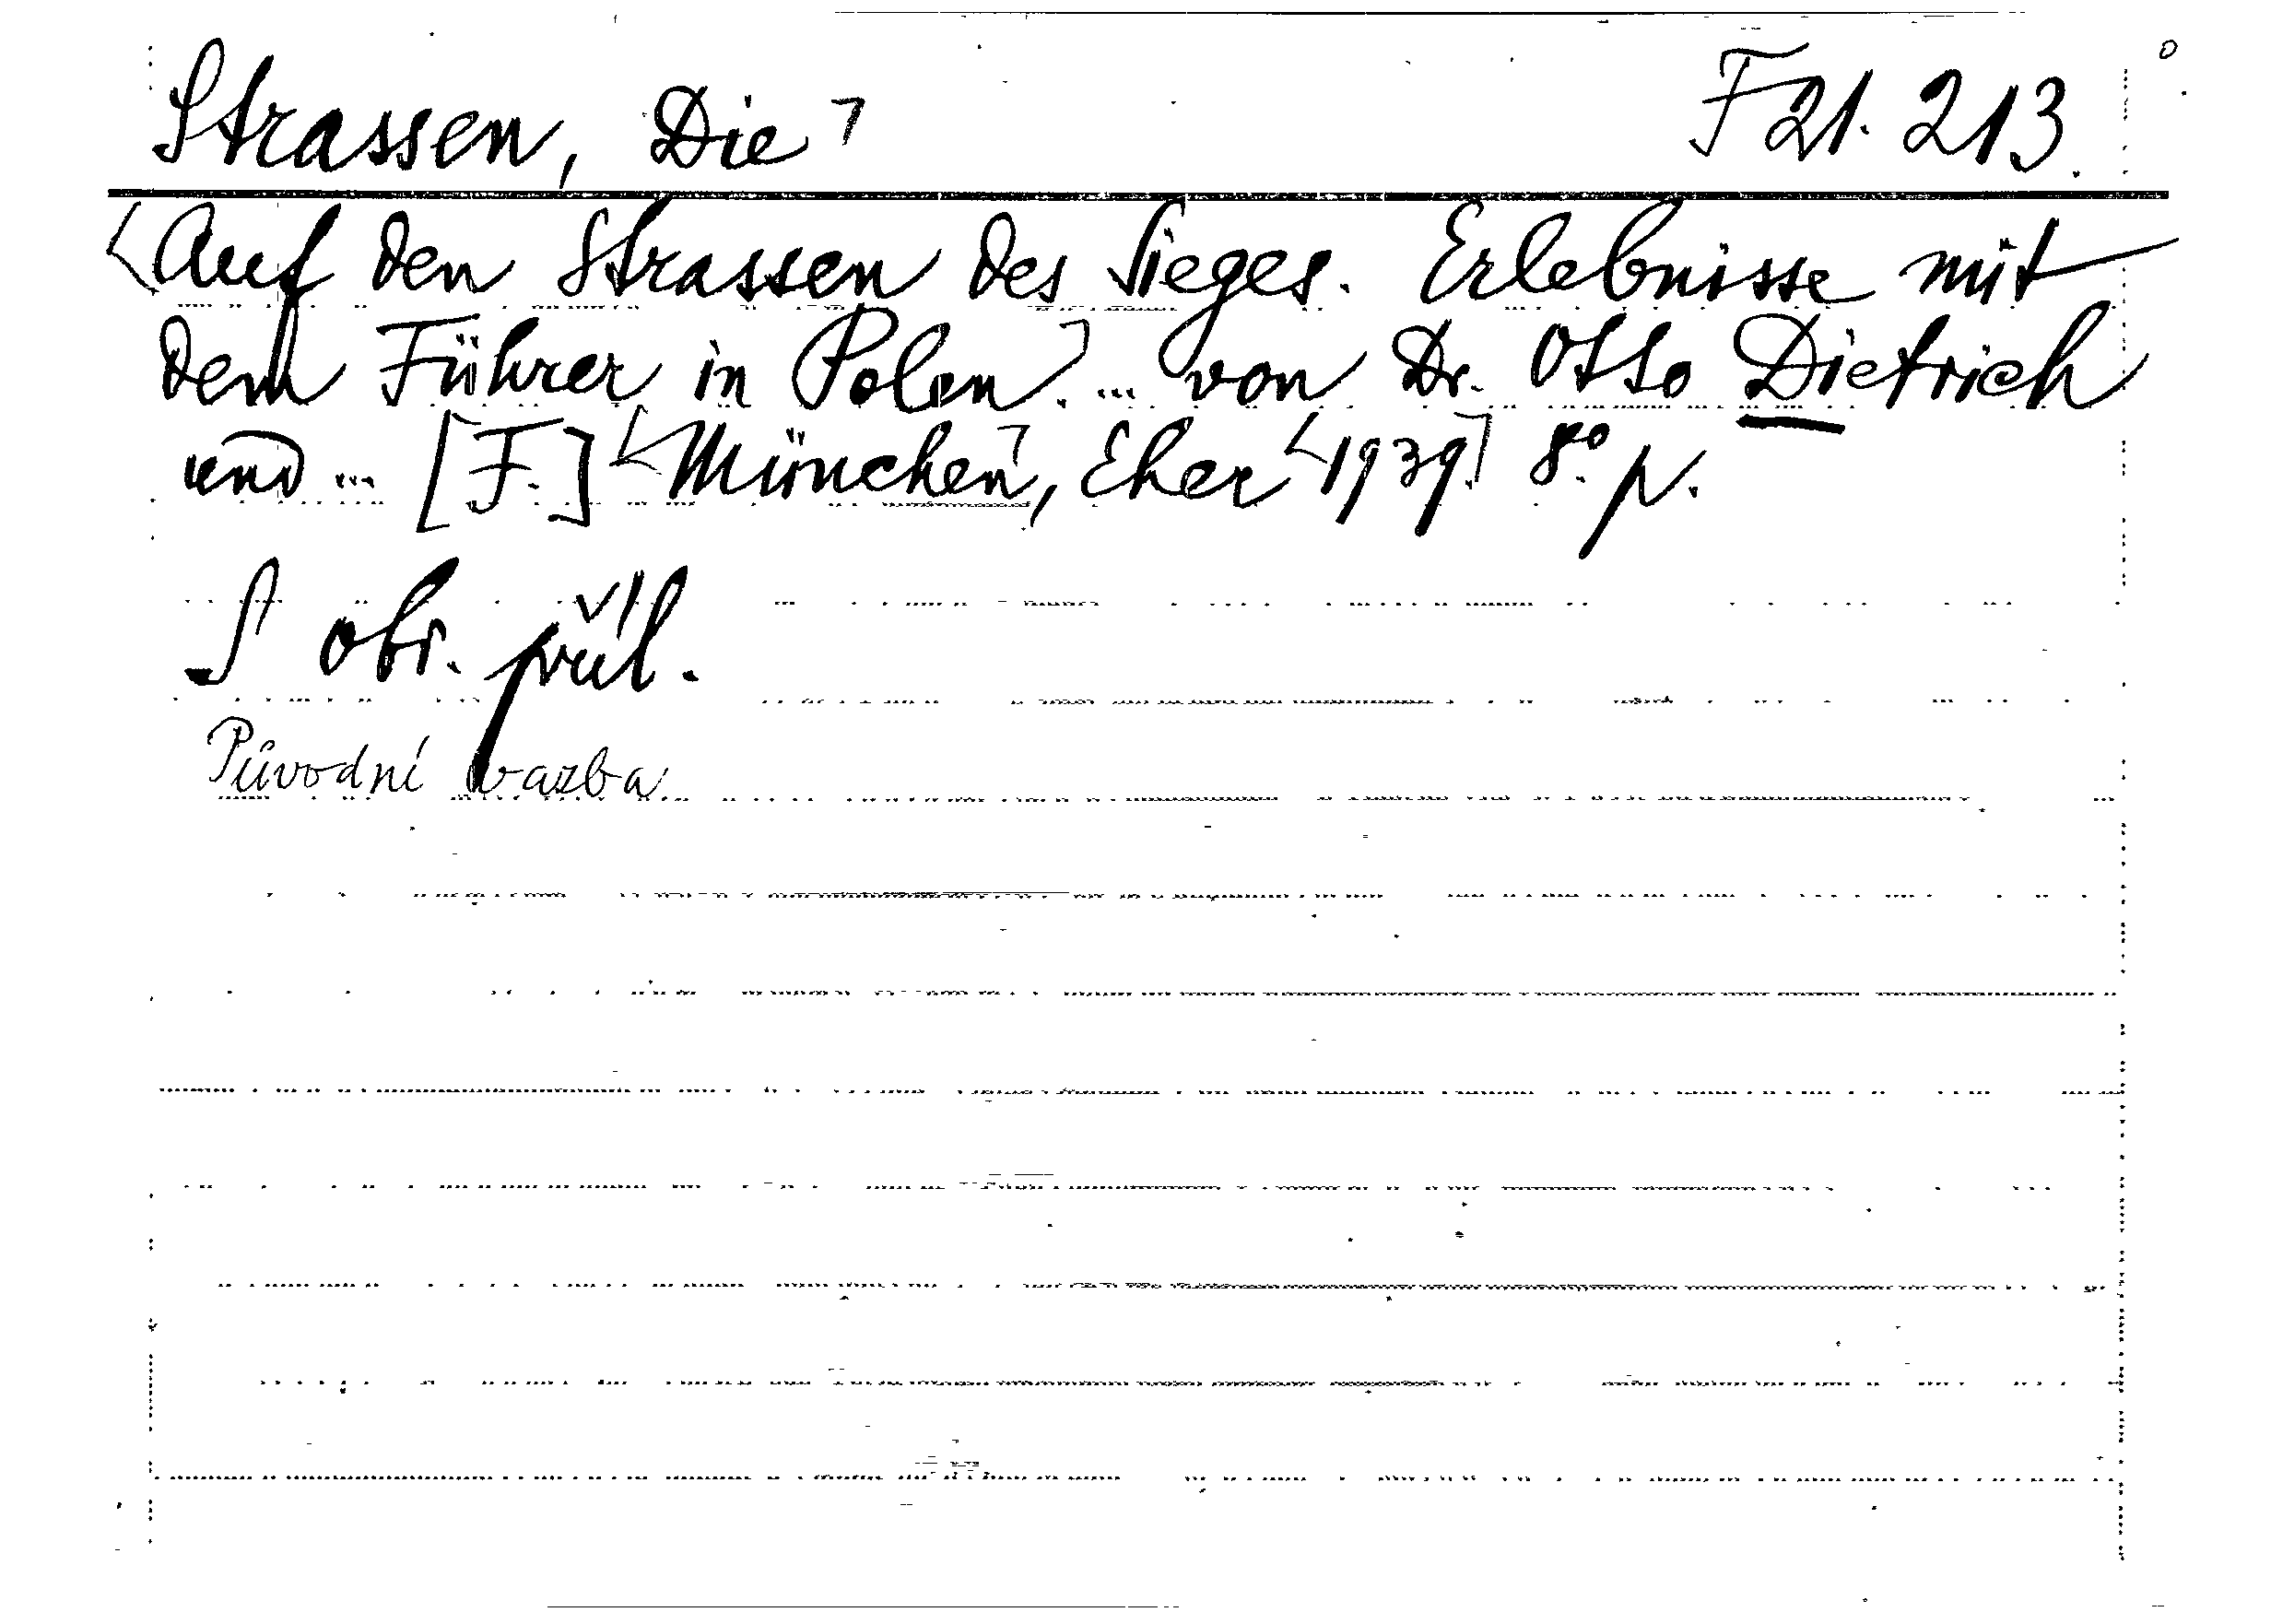 Strassen, Die⌝ F 21. 213.
⟨Auf den Strassen des Sieges. Erlebnisse mit
dem Führer in Polen⌝. ... von Dr. Otto Dietrich
und ... [F.] ⟨München⌝, Eher ⟨1939.⌝ 8°. p.
S obr. příl.
Původní vazba